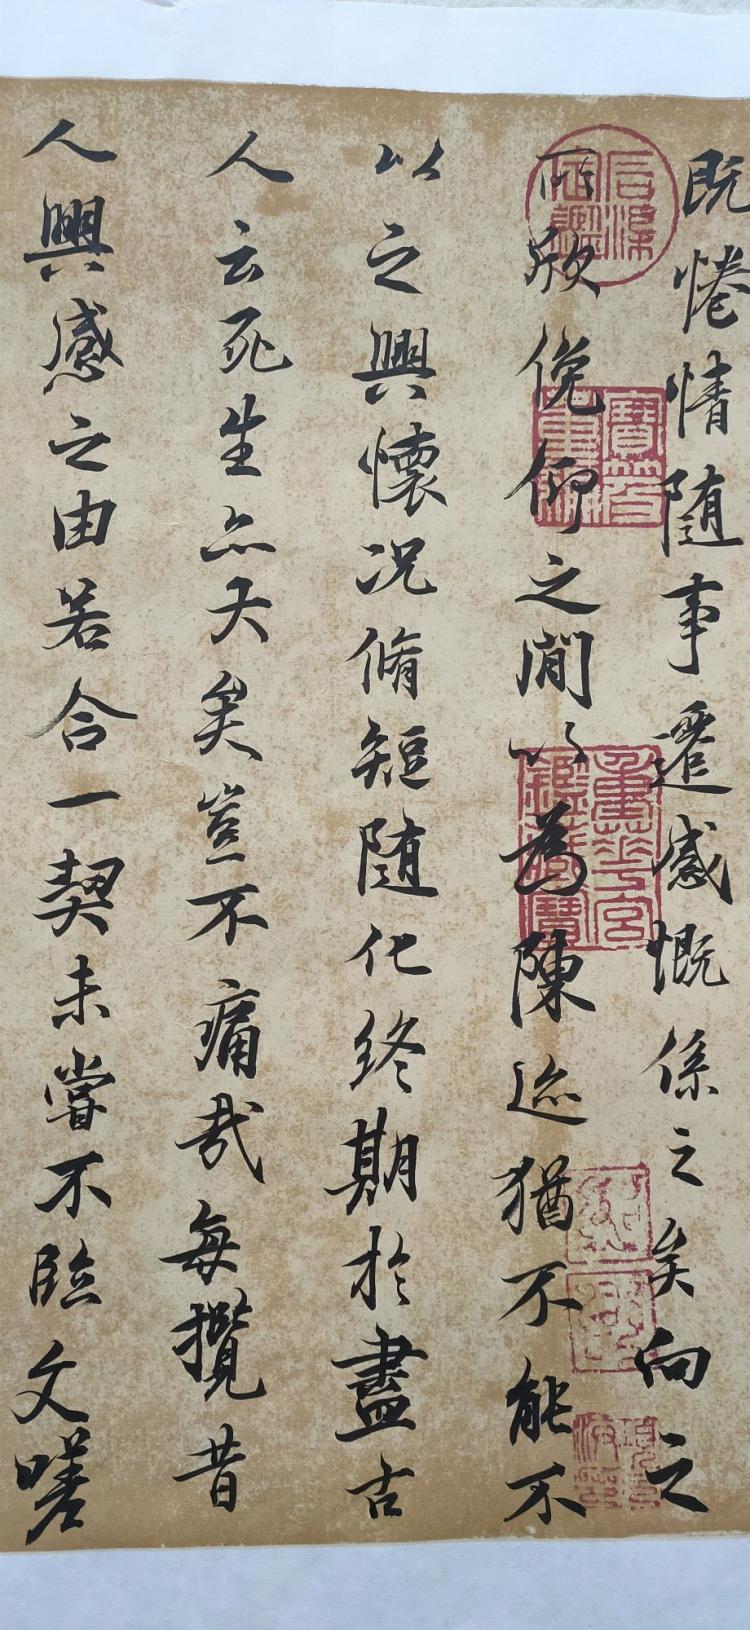 既惓情随事遷感慨係之矣向之
所欣俛仰之閒以為陳迹猶不能不
以之興懷况脩短随化終期於盡古
人云死生亦大矣豈不痛哉每攬昔
人興感之由若合一契未嘗不臨文嗟